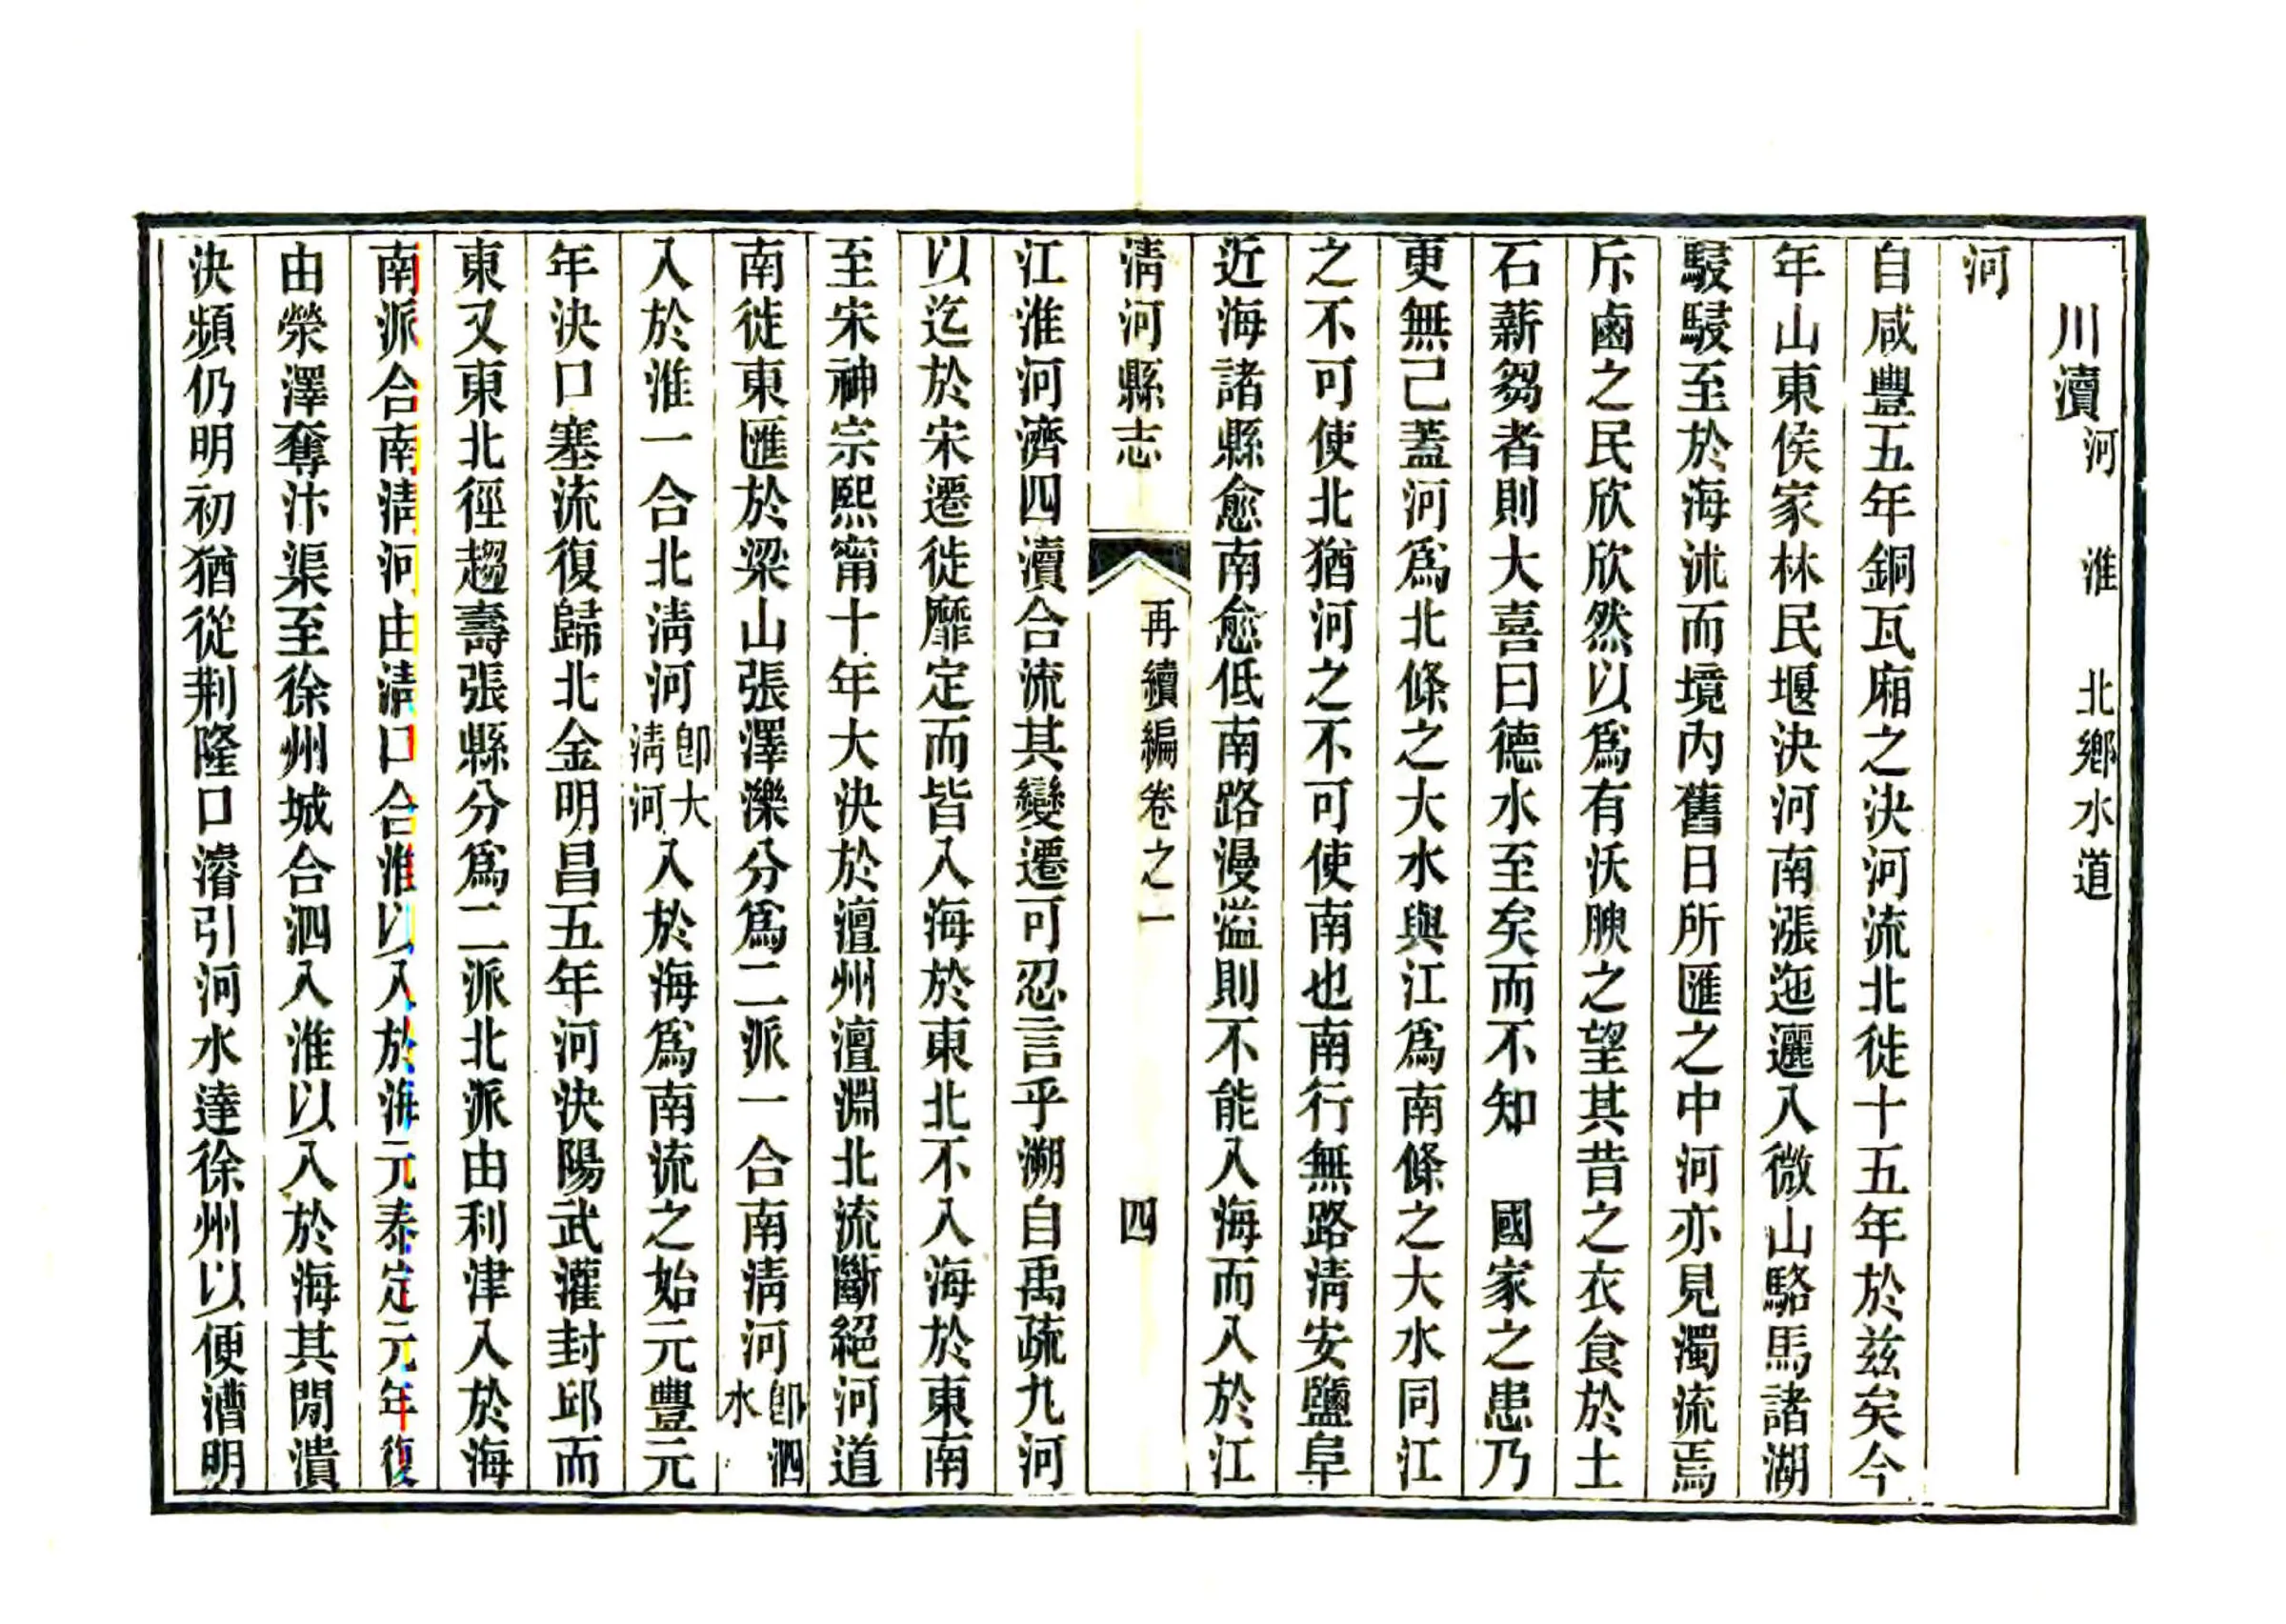 川瀆河 淮 北鄉水道
河
自咸豐五年銅瓦廂之決河流北徙十五年於兹矣今
年山東侯家林民堰決河南漲迤邐入微山駱馬諸湖
駸駸至於海沭而境內舊日所匯之中河亦見濁流焉
斥鹵之民欣欣然以爲有沃腴之望其昔之衣食於土
石薪芻者則大喜曰德水至矣而不知 國家之患乃
更無已蓋河爲北條之大水與江爲南條之大水同江
之不可使北猶河之不可使南也南行無路清安鹽阜
近海諸縣愈南愈低南路漫溢則不能入海而入於江
清河縣志 再續編卷之一 四
江淮河濟四瀆合流其變遷可忍言乎溯自禹疏九河
以迄於宋遷徙靡定而皆入海於東北不入海於東南
至宋神宗熙甯十年大決於澶州澶淵北流斷絕河道
南徙東匯於梁山張澤濼分爲二派一合南清河卽泗水
入於淮一合北清河卽大清河入於海爲南流之始元豐元
年決口塞流復歸北金明昌五年河決陽武灌封邱而
東又東北徑趨壽張縣分爲二派北派由利津入於海
南派合南清河由清口合淮以入於海元泰定元年復
由滎澤奪汴渠至徐州城合泗入淮以入於海其閒潰
決頻仍明初猶從荆隆口濬引河水達徐州以便漕明